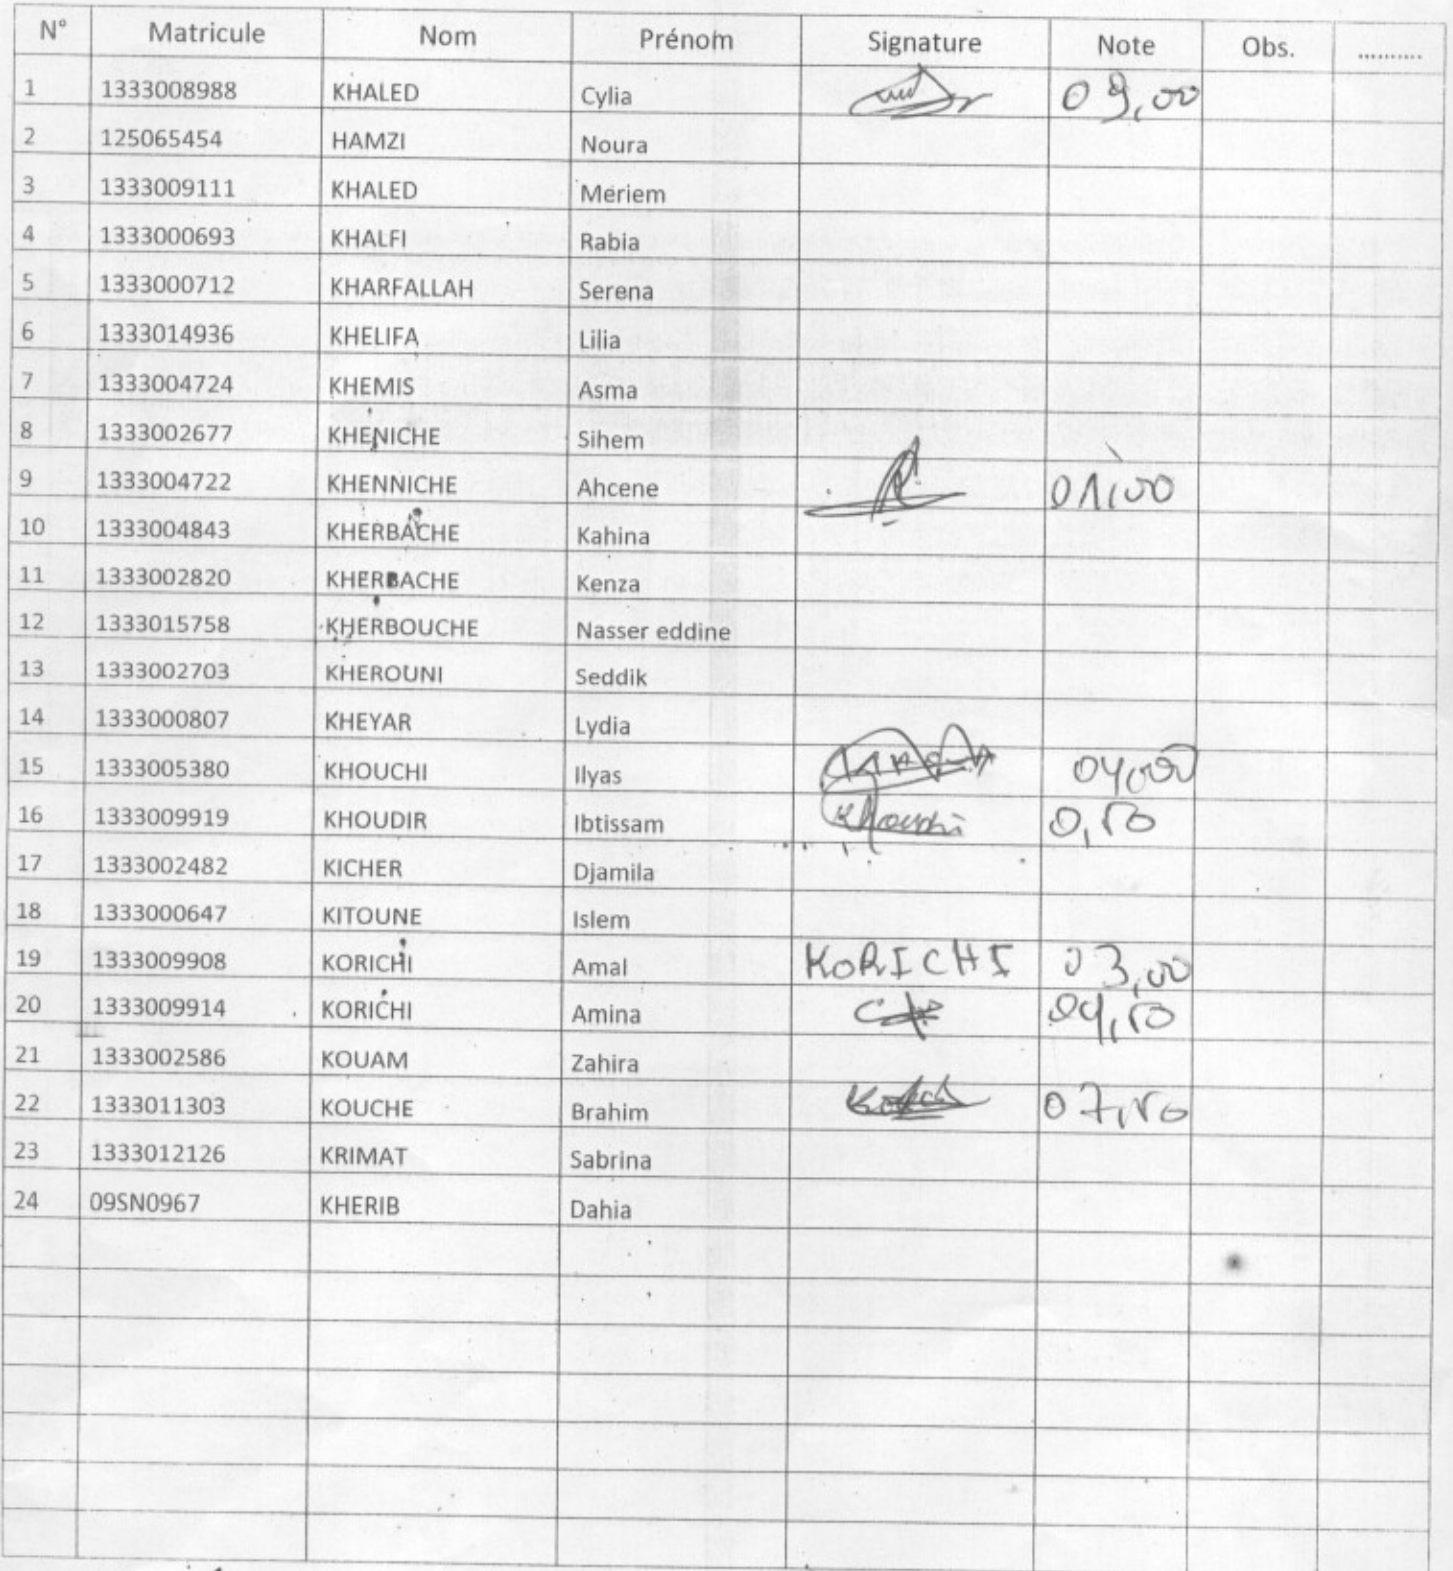 N° Matricule Nom Prénom Signature Note Obs. ..........
1 1333008988 KHALED Cylia 09,00
2 125065454 HAMZI Noura
3 1333009111 KHALED Meriem
4 1333000693 KHALFI Rabia
5 1333000712 KHARFALLAH Serena
6 1333014936 KHELIFA Lilia
7 1333004724 KHEMIS Asma
8 1333002677 KHENICHE Sihem
9 1333004722 KHENNICHE Ahcene 01,00
10 1333004843 KHERBACHE Kahina
11 1333002820 KHERBACHE Kenza
12 1333015758 KHERBOUCHE Nasser eddine
13 1333002703 KHEROUNI Seddik
14 1333000807 KHEYAR Lydia
15 1333005380 KHOUCHI Ilyas 04,00
16 1333009919 KHOUDIR Ibtissam 0,50
17 1333002482 KICHER Djamila
18 1333000647 KITOUNE Islem
19 1333009908 KORICHI Amal KORICHI 03,00
20 1333009914 KORICHI Amina
21 1333002586 KOUAM Zahira
22 1333011303 KOUCHE Brahim 07,50
23 1333012126 KRIMAT Sabrina
24 09SN0967 KHERIB Dahia